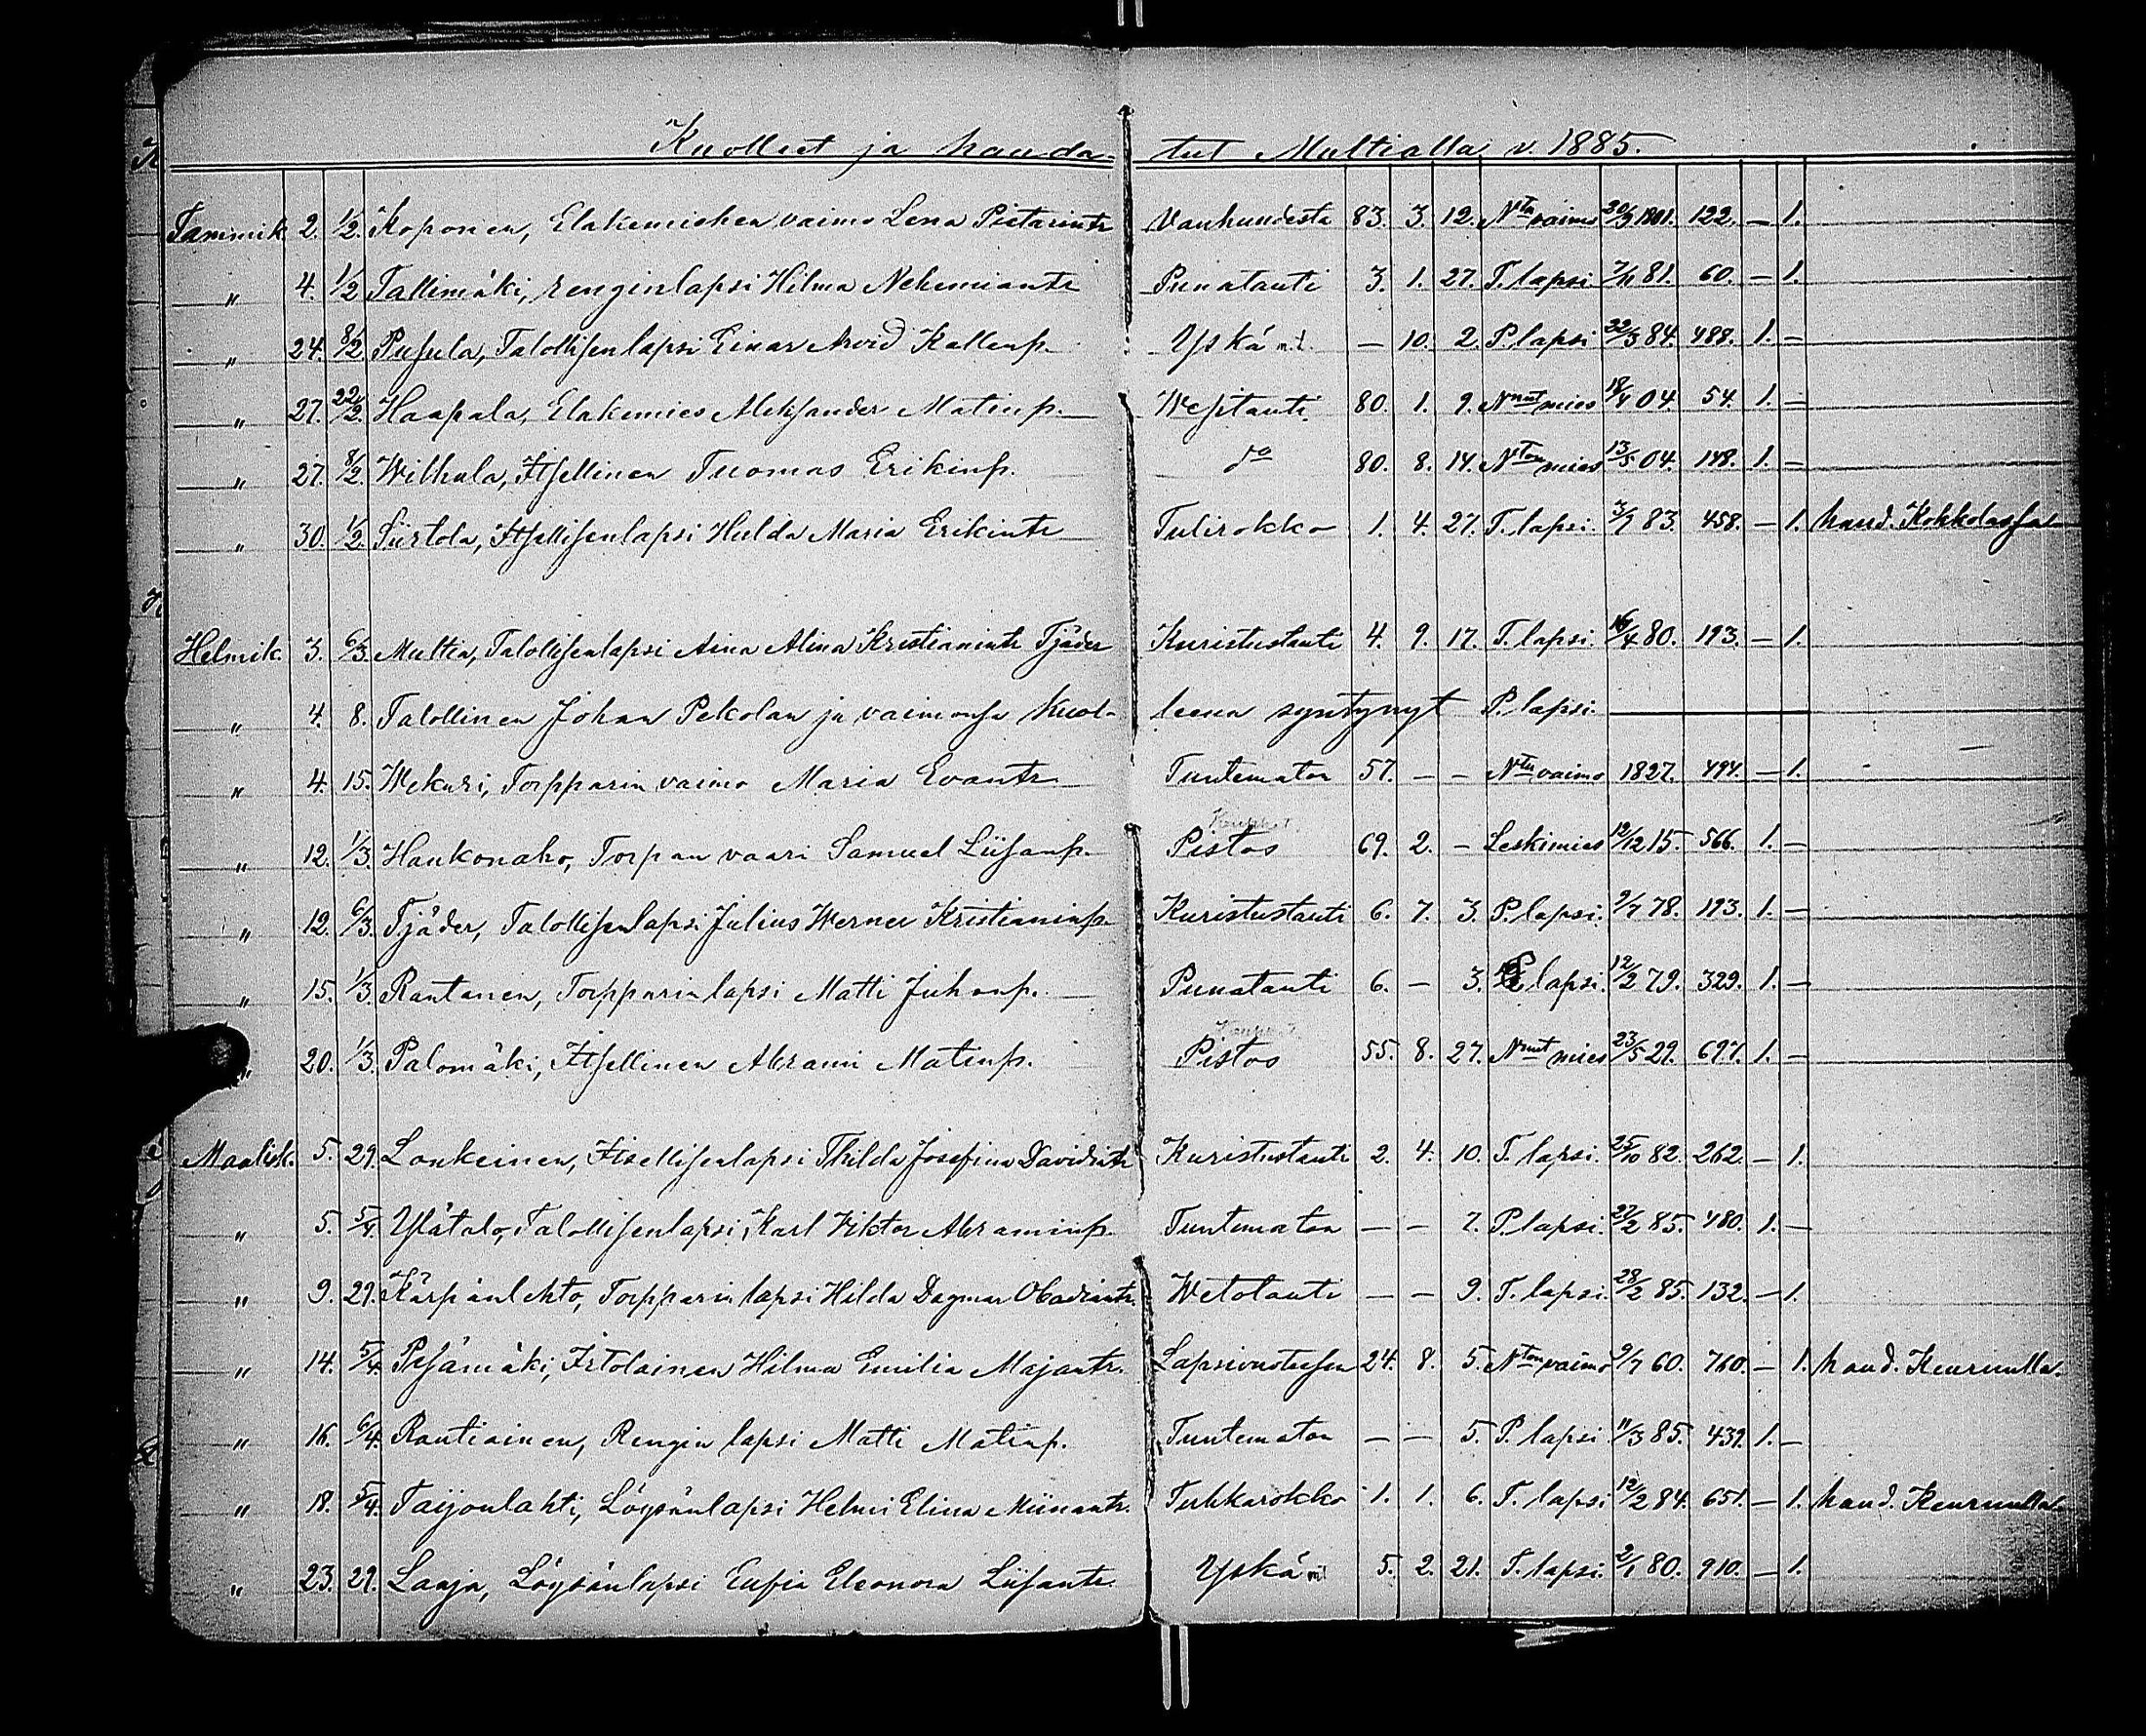 Kuolleet ja haudatut Multialla v. 1885.
Tammik. 2. 1/2. Koponen, Eläkemiehen vaimo Lena Pietarintr Vanhuudesta 83. 3. 12. Ntn vaimo 20/9 1801. 122. — 1.
„ 4. 1/2 Tallimäki, renginlapsi Hilma Nehemiantr Punatauti 3. 1. 27. T. lapsi. 7/11 81. 60. — 1.
„ 24. 8/2 Pusula, Talollisenlapsi Einar Arvid Kallenp. Yskä — 10. 2. P. lapsi 22/3 84. 488. 1. —
„ 27. 22/2. Haapala, Eläkemies Aleksander Matinp. Wesitauti 80. 1. 9. Nnut mies 18/ 04. 54. 1. —
„ 27. 8/2. Wilhula, Itsellinen Tuomas Erikinp. do 80. 8. 14. Nton mies 13/5 04. 148. 1. —
„ 30. 1/2. Siirtola, Itsellisenlapsi Hulda Maria Erikintr Tulirokko 1. 4. 27. T. lapsi. 3/9 83. 458. — 1. haud. Kokkolassa
Helmik. 3. 6/3. Multia, Talollisenlapsi Aina Alina Kristianintr Tjäder Kuristustauti 4. 9. 17. T. lapsi. 16/4 80. 193. — 1.
„ 4. 8. Talollinen Johan Pekolan ja vaimonsa kuolleena syntynyt P. lapsi.
„ 4. 15. Wekuri, Torpparin vaimo Maria Evantr Tuntematon 57. — — Ntn vaimo 1827. 494. — 1.
„ 12. 1/3. Haukonaho, Torpan vaari Samuel Liisanp. Pistos 69. 2. — Leskimies 12/12 15. 566. 1. —
„ 12. 6/3. Tjäder, Talollisenlapsi Julius Werner Kristianinp. Kuristustauti 6. 7. 3. P. lapsi. 9/7 78. 193. 1. —
„ 15. 1/3. Rantanen, Torpparin lapsi Matti Juhonp. Punatauti 6. — 3. P. lapsi. 12/2 79. 329. 1. —
„ 20. 1/3. Palomäki, Itsellinen Abrami Matinp. Pistos 55. 8. 27. Nnut mies 23/5 29. 697. 1. —
Maalisk. 5. 29. Loukeinen, Itsellisenlapsi Thilda Josefina Davidintr Kuristustauti 2. 4. 10. T. lapsi. 25/10 82. 262. — 1.
„ 5. 5/4. Ylätalo, Talollisenlapsi, Karl Viktor Abraminp. Tuntematon — — 7. P. lapsi. 27/2 85. 480. 1. —
„ 9. 29. Kärpänlehto, Torpparin lapsi Hilda Dagmar Obadiantr. Wetotauti — — 9. T. lapsi. 28/2 85. 132. — 1.
„ 14. 5/4. Pesämäki, Irtolainen Hilma Emilia Majantr. Lapsivuoteesen 24. 8. 5. Nton vaimo 9/7 60. 760. — 1. haud. Keuruulla.
„ 16. 6/4. Rautiainen, Rengin lapsi Matti Matinp. Tuntematon — — 5. P. lapsi 11/3 85. 439. 1. —
„ 18. 5/4. Taijonlahti, Löysänlapsi Helmi Elina Miinantr. Tuhkarokko 1. 1. 6. T. lapsi 12/2 84. 651. — 1. haud. Keuruulla.
„ 23. 29. Laaja, Löysänlapsi Eufia Eleonora Liisantr. Yskä 5. 2. 21. T. lapsi. 2/1 80. 910. — 1.